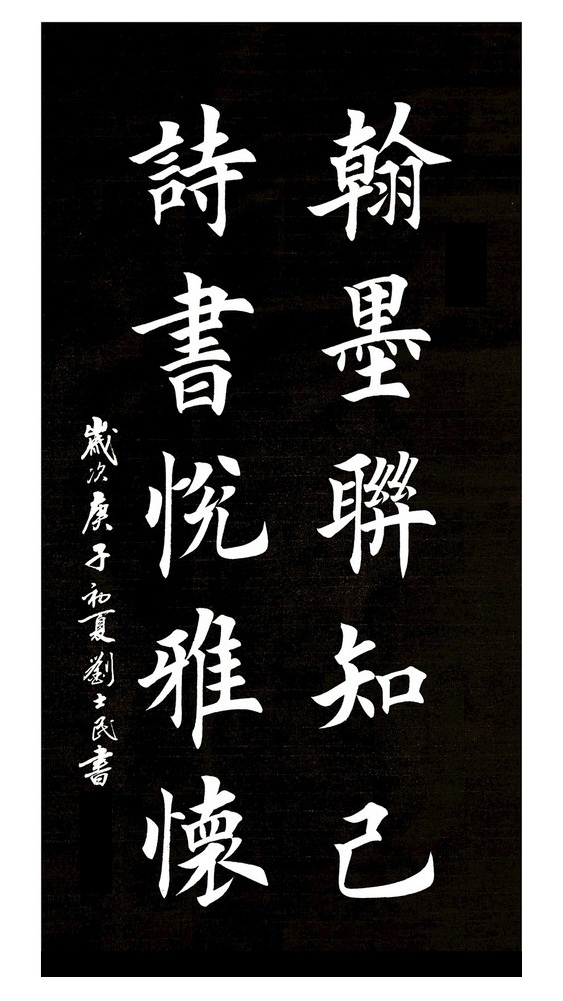 翰墨聯知己
詩書悅雅懷
歲次庚子初夏劉士民書